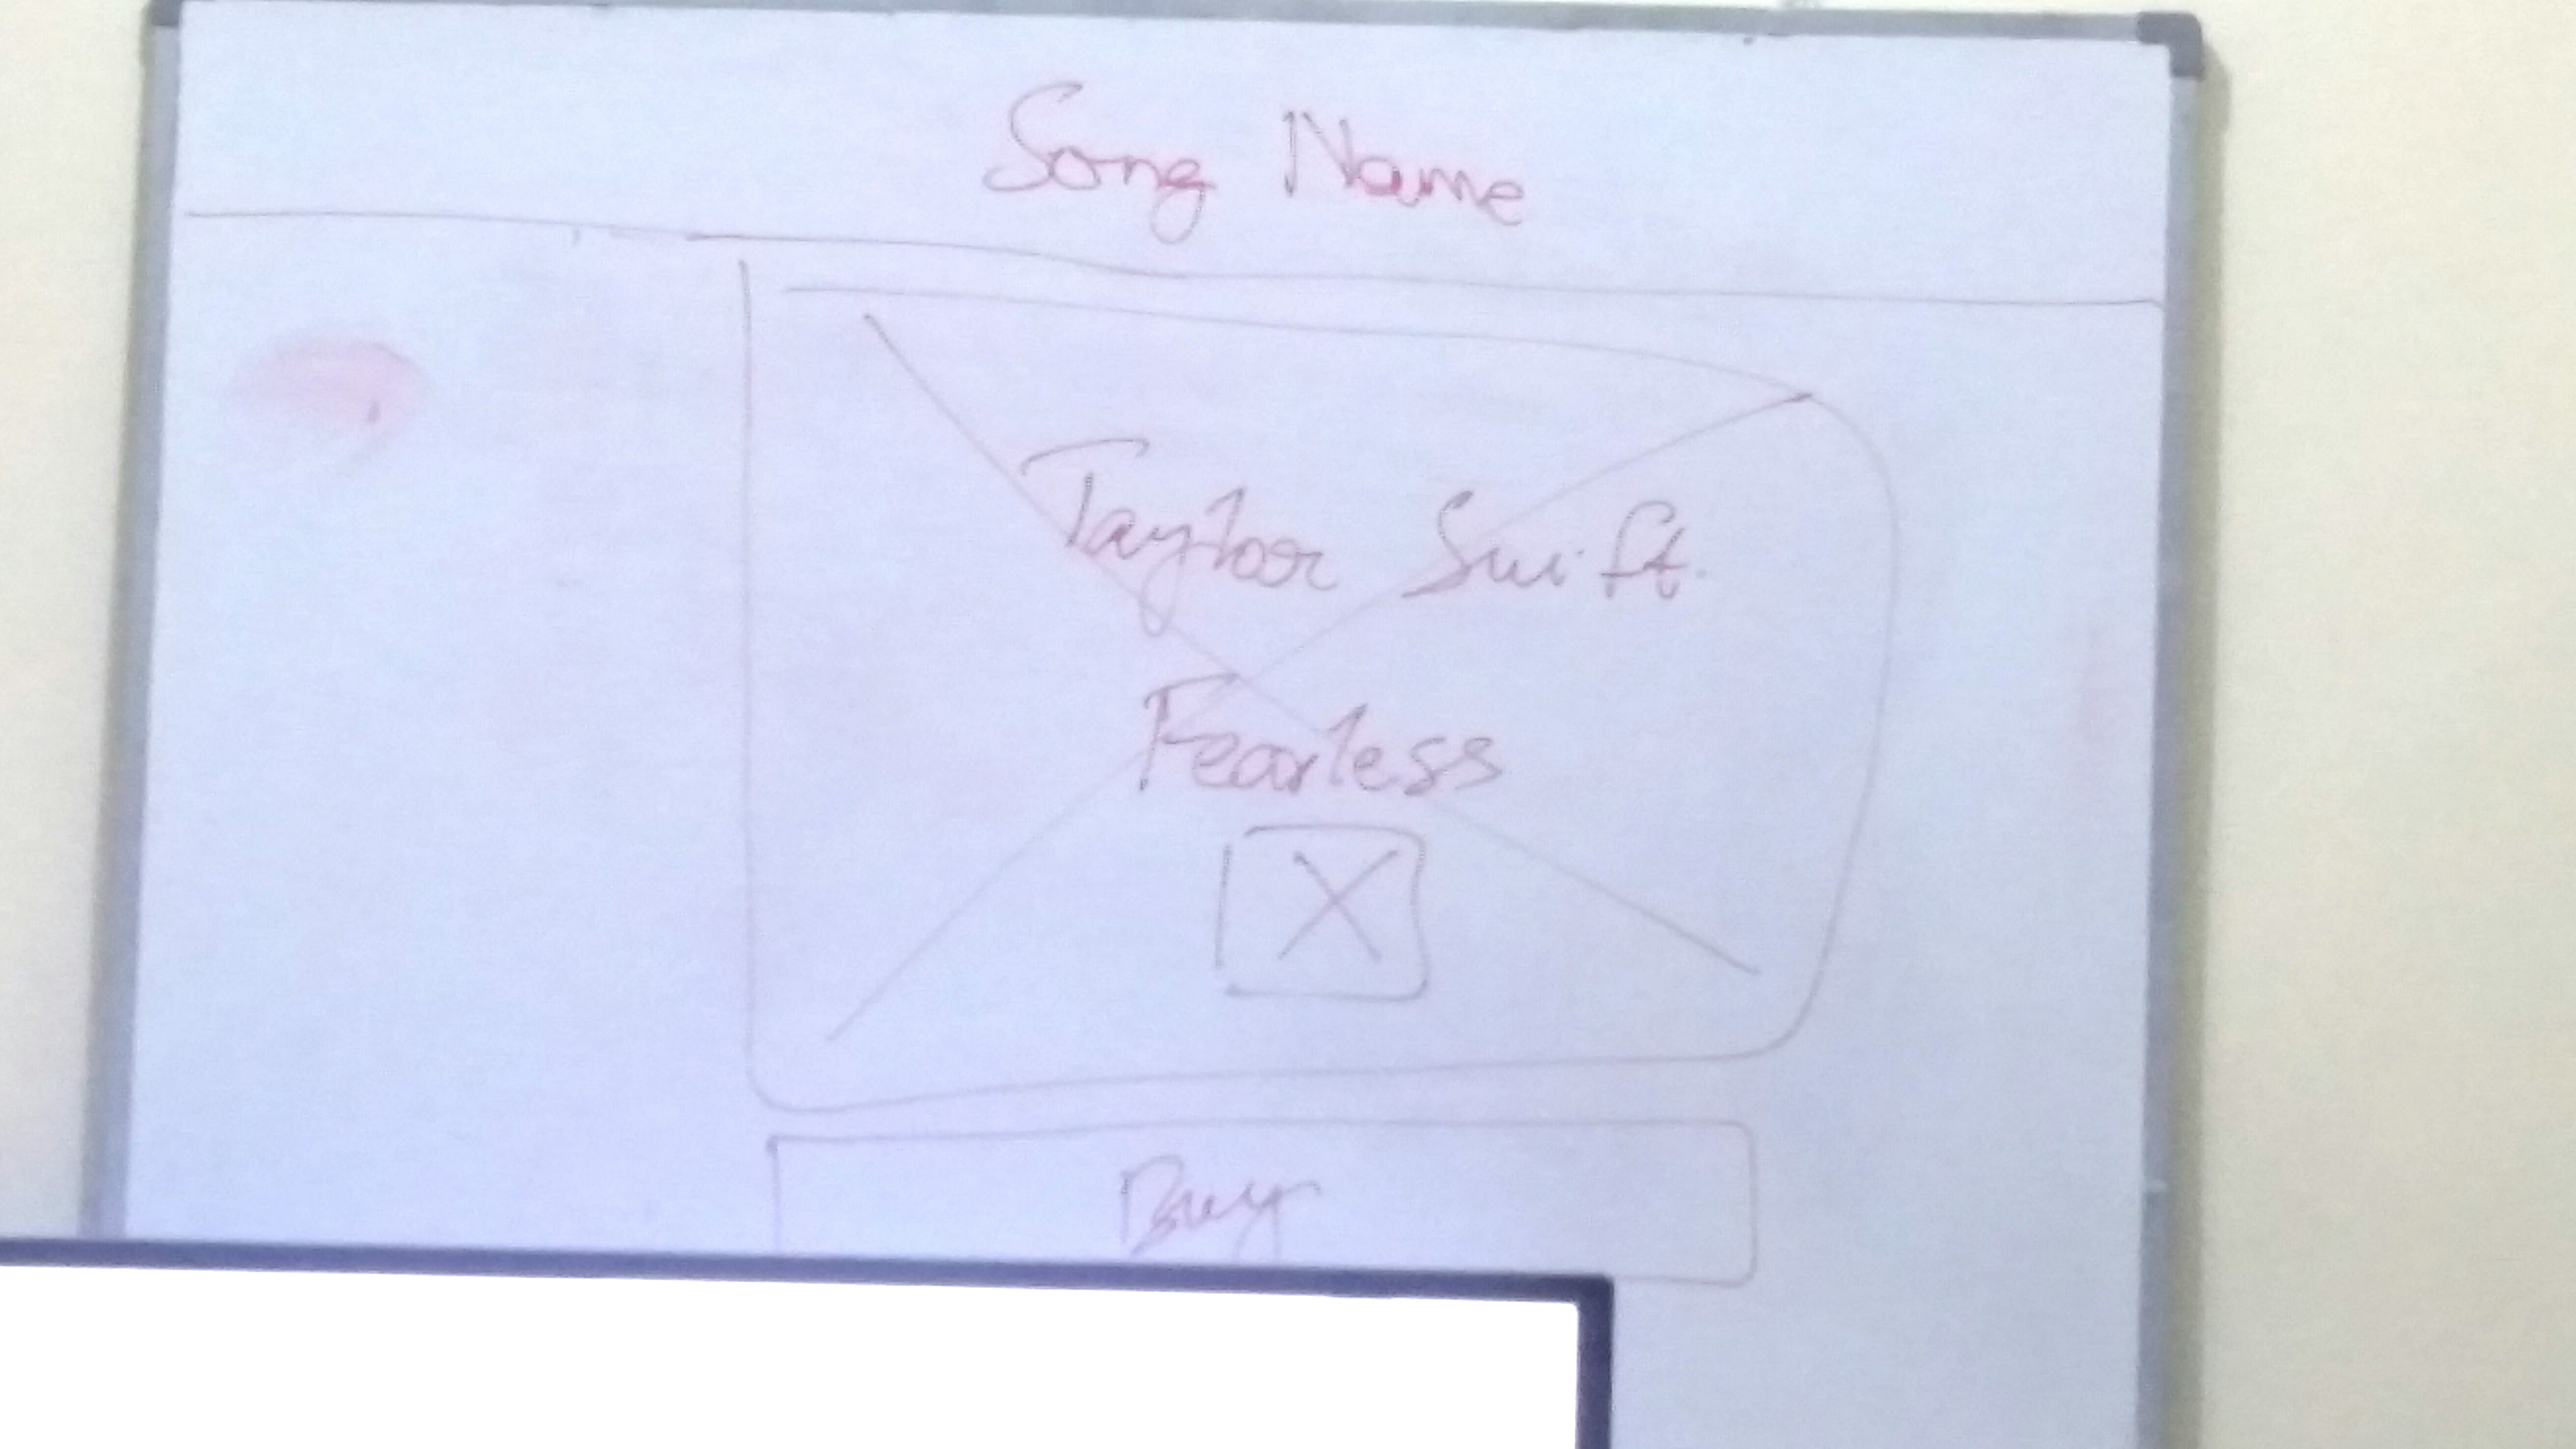 Song Name
Taylor Swift.
Fearless
Buy